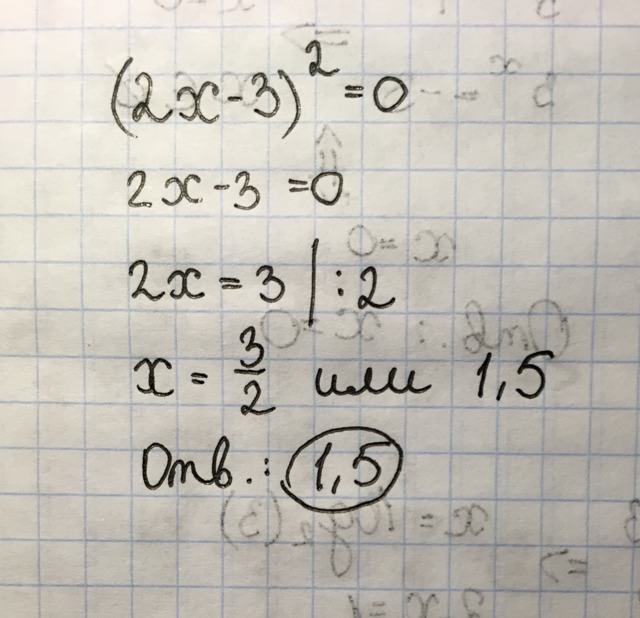 (2x-3)² = 0
2x-3 = 0
2x = 3 | : 2
x = 3/2 или 1,5
Отв.: 1,5